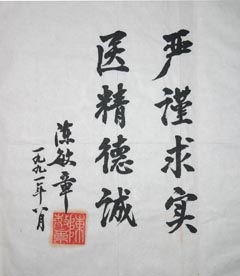 严谨求实
医精德诚
陈敏章
一九九一年八月